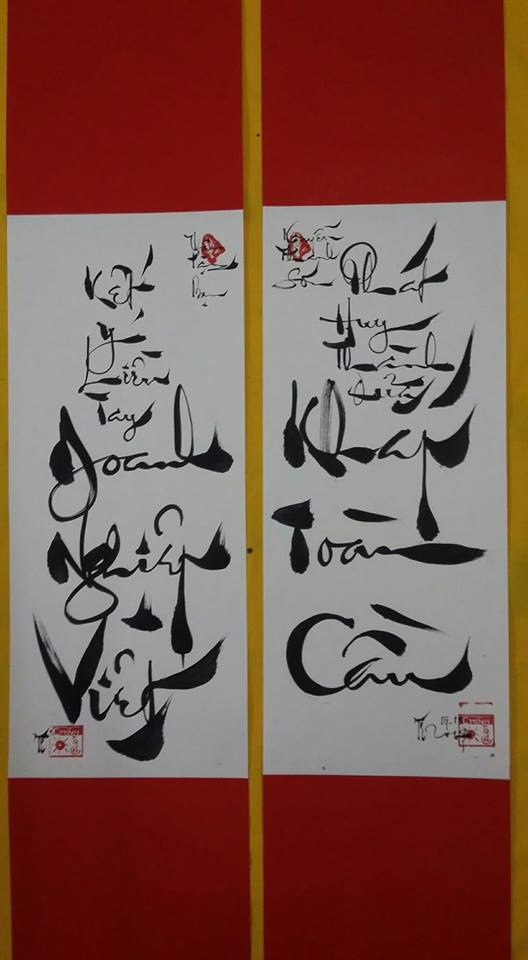 Nguyễn
Thành
Sơn
Phát
Huy
Thành
Quả
Khắp
Toàn
Cầu
Kết
Ý
Liền
Tay
Doanh
Nghiệp
Việt